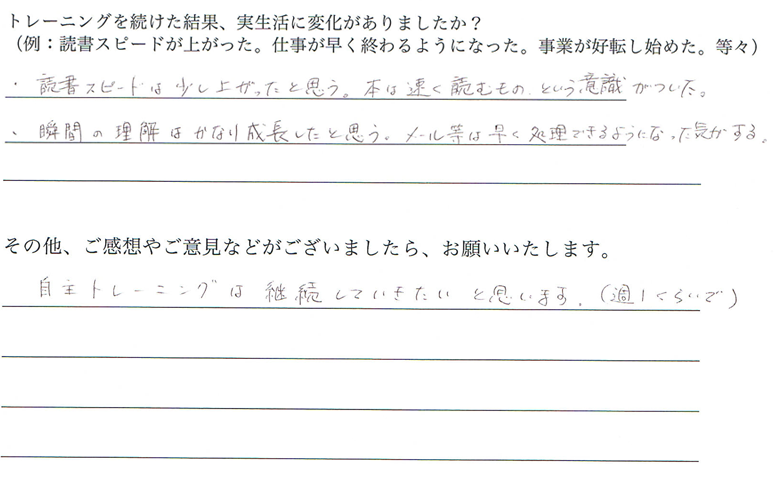 トレーニングを続けた結果、実生活に変化がありましたか？
（例：読書スピードが上がった。仕事が早く終わるようになった。事業が好転し始めた。等々）
・読書スピードは少し上がったと思う。本は速く読むもの、という意識がついた。
・瞬間の理解はかなり成長したと思う。メール等は早く処理できるようになった気がする。
その他、ご感想やご意見などがございましたら、お願いいたします。
自主トレーニングは継続していきたいと思います。（週1くらいで）